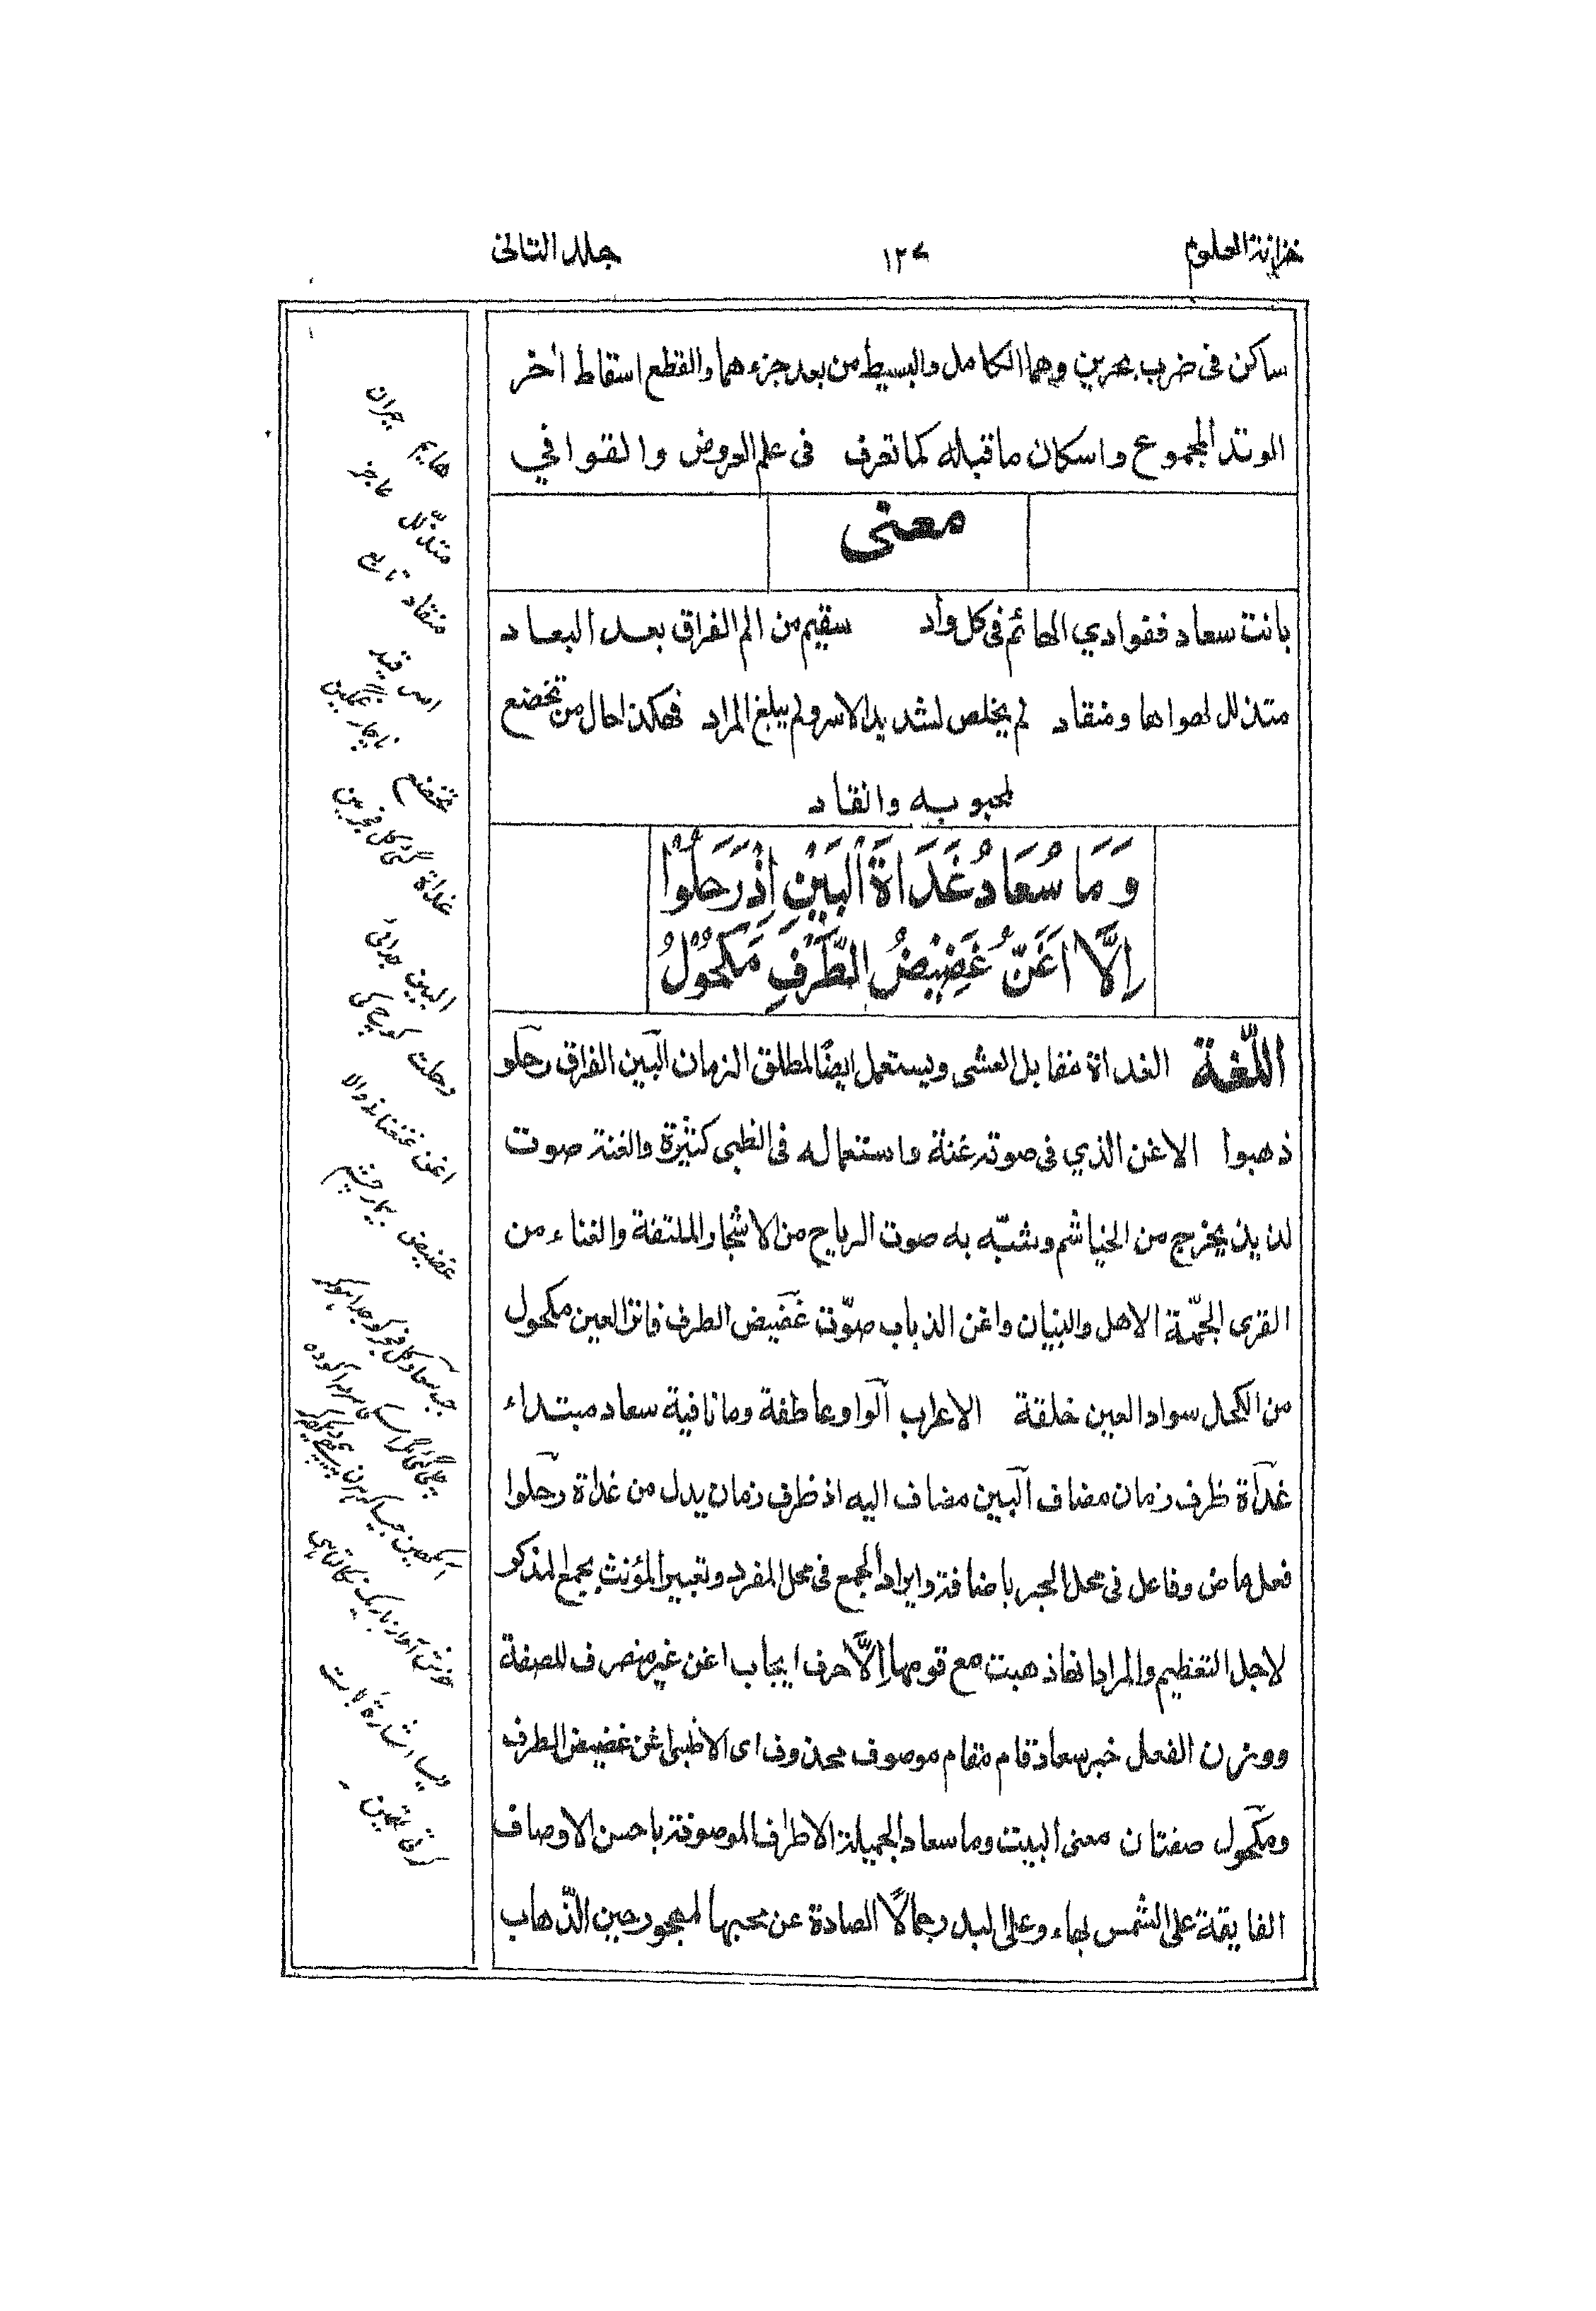 خزانة العلوم
١٢٧
جلد الثانی
ساكن فى ضرب بحرين وهما الكامل والبسيط من بعد جزءهما والقطع اسقاط أخر
الوتد المجموع واسكان ما قبله كما تعرف فى علم العروض والقوافي
معنى
بانت سعاد ففوادي الهائم فى كل واد سقيم من الم الفراق بعد البعاد
متذلل لهواها ومنقاد لم يخلص لشديد الاسر ولم يبلغ المراد فهكذا حال من تخضع
لمحبوبه وانقاد
وَمَا سُعَادُ غَدَاةَ الْبَيْنِ اِذْ رَحَلُوْا
اِلَّا اَغَنُّ غَضِيْضُ الطَّرْفِ مَكْحُوْلُ
اللّغة الغداة مقابل العشى ويستعمل ايضًا لمطلق الزمان البين الفراق رحلو
ذهبوا الاغن الذي فى صوته غنة واستعماله فى الظبى كثيرة والغنة صوت
لذيذ يخرج من الخياشم وشبّه به صوت الرياح من الاشجار الملتفة والغناء من
القرى الجمّة الاهل والبنيان واغن الذباب صوّت غضيض الطرف فاتر العين مكحول
من الكحل سواد العين خلقة الاعراب الواو عاطفة وما نافية سعاد مبتداء
غداة ظرف زمان مضاف البين مضاف اليه اذ ظرف زمان بدل من غداة رحلوا
فعل ماض وفاعل فى محل الجر باضافة وايراد الجمع فى محل المفرد وتعبير المؤنث بجمع المذكر
لاجل التعظيم والمراد انها ذهبت مع قومها اِلَّا حرف ايجاب اغن غير منصرف للصفة
ووزن الفعل خبر سعاد قام مقام موصوف محذوف اى الا ظبى اغن غضيض الطرف
ومكحول صفتان معنى البيت وما سعاد الجميلة الاطراف الموصوفة باحسن الاوصاف
الفايقة على الشمس بهاء وعلى البدر جمالًا الصادة عن محبها المهجور حين الذّهاب
هايم حيران
متذلّل عاجز
منقاد تابع
اسر قيد
تخضع
غداة
البين جدائى
رحلت
اغن
غضيض بيمار چشم